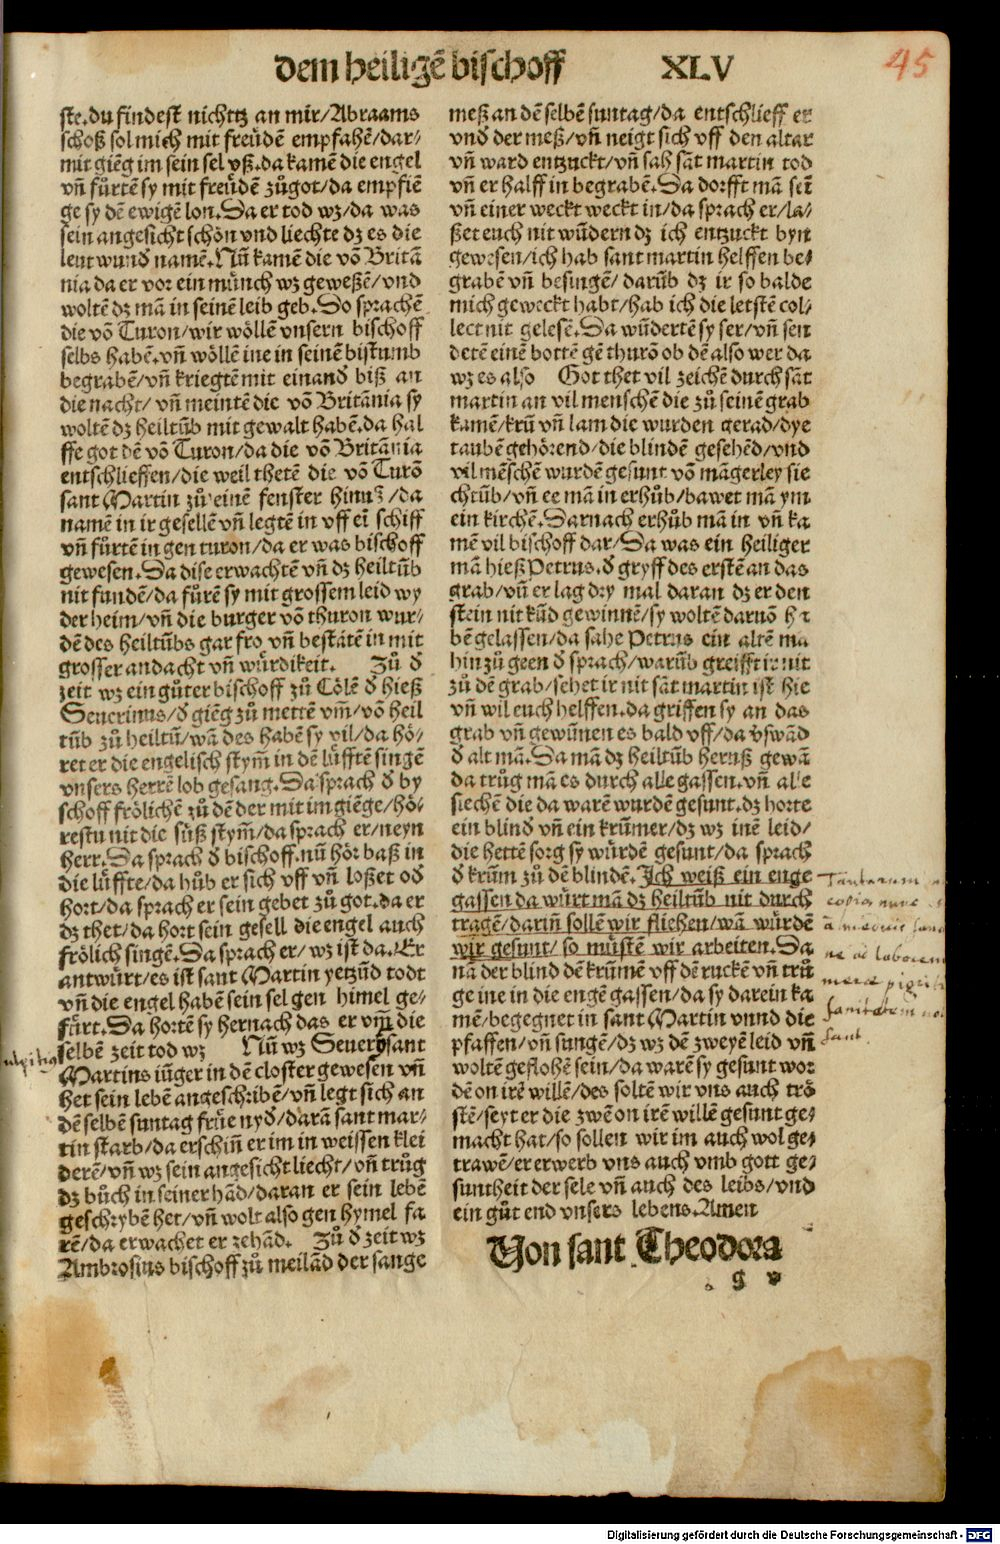 dem heiligē bischoff XLV
45
ste. du findest nichtz an mir/Abraams
schoß sol mich mit freüdē empfahē/dar⸗
mit giēg im sein sel vß. da kamē die engel
vñ fůrtē sy mit freüdē zůgot/da empfiē
ge sy dē ewigē lon. Da er tod wz/da was
sein angesicht schön vnd liechte dz es die
leut wund namē. Nū kamē die vō Britā
nia da er vor ein münch wz geweßē/vnd
woltē dz mā in seinē leib geb. So sprachē
die vō Turon/wir wöllē vnsern bischoff
selbs habē. vñ wöllē ine in seinē bistumb
begrabē/vñ kriegtē mit einand biß an
die nacht/ vñ meintē die vō Britānia sy
woltē dz heiltūb mit gewalt habē. da hal
ffe got dē vō Turon/da die vō Britānia
entschlieffen/die weil thetē die vō Turō
sant Martin zů einē fenster hinuß/da
namē in ir gesellē vñ legtē in vff ei schiff
vñ fůrtē in gen turon/da er was bischoff
gewesen. Da dise erwachtē vñ dz heiltūb
nit fundē/da fůrē sy mit grossem leid wy
der heim/vñ die burger vō thuron wur⸗
dē des heiltūbs gar fro vñ bestātē in mit
grosser andacht vñ würdikeit. Zů d
zeit wz ein gůter bischoff zů Cölē d hieß
Seuerinus/d giēg zů mettē vm/vō heil
tūb zů heiltū/wā des habē sy vil/da hö⸗
ret er die engelisch stym in dē lüfftē singē
vnsers herrē lob gesang. Da sprach d by
schoff frölichē zů dē der mit im giēge/hö⸗
restu nit die süß stym/da sprach er/neyn
herr. Da sprach d bischoff. nū hör baß in
die lüffte/da hůb er sich vff vñ loßet od
hort/da sprach er sein gebet zů got. da er
dz thet/da hort sein gesell die engel auch
frölich singē. Da sprach er/ wz ist da. Er
antwürt/es ist sant Martin yetzūd todt
vñ die engel habē sein sel gen himel ge⸗
fürt. Da hortē sy hernach das er vm die
selbē zeit tod wz Nū wz Seuerus sant
Martins iūger in dē closter gewesen vñ
het sein lebē angeschribē/vñ legt sich an
dē selbē suntag früe nyd/darā sant mar⸗
tin starb/da erschin er im in weissen klei
derē/vñ wz sein angesicht liecht/vñ trůg
dz bůch in seiner hād/daran er sein lebē
geschrybē het/vñ wolt also gen hymel fa
rē/da erwachet er zehād. Zů d zeit wz
Ambrosius bischoff zů meilād der sange
meß an dē selbē suntag/da entschlieff er
vnd der meß/vñ neigt sich vff den altar
vñ ward entzuckt/vñ sah sāt martin tod
vñ er halff in begrabē. Da dorfft mā sei
vñ einer weckt weckt in/da sprach er/la⸗
ßet euch nit wūdern dz ich entzuckt byn
gewesen/ich hab sant martin helffen be⸗
grabē vñ besingē/ darūb dz ir so balde
mich geweckt habt/hab ich die letstē col⸗
lect nit gelesē. Da wūdertē sy ser/vñ sen
detē einē bottē gē thurō ob dē also wer da
wz es also Got thet vil zeichē durch sāt
martin an vil menschē die zů seinē grab
kamē/krū vñ lam die wurden gerad/dye
taubē gehörend/die blindē gesehēd/vnd
vil mēschē wurdē gesunt vō māgerley sie
chtūb/vñ ee mā in erhůb/bawet mā ym
ein kirchē. Darnach erhůb mā in vñ ka
mē vil bischoff dar/Da was ein heiliger
mā hieß Petrus. d gryff des erstē an das
grab/vñ er lag dry mal daran dz er den
stein nit kūd gewinnē/sy woltē daruō h
bē gelassen/da sahe Petrus ein altē ma
hin zů geen d sprach/warūb greifft ir nit
zů dē grab/sehet ir nit sāt martin ist hie
vñ wil euch helffen. da griffen sy an das
grab vñ gewūnen es bald vff/da vswād
d alt mā. Da mā dz heiltūb heruß gewā
da trůg mā es durch alle gassen. vñ alle
siechē die da warē wurdē gesunt. dz horte
ein blind vñ ein krūmer/dz wz inē leid/
die hettē sorg sy würdē gesunt/da sprach
d krūm zů dē blindē. Ich weiß ein enge
gassen da würt mā dz heiltūb nit durch
tragē/darin sollē wir fliehen/wā würdē
wir gesunt/ so müstē wir arbeiten. Da
nā der blind dē krūmē vff dē ruckē vñ trů
ge ine in die engē gassen/da sy darein ka
mē/begegnet in sant Martin vnnd die
pfaffen/vñ sungē/dz wz dē zweyē leid vñ
woltē geflohē sein/da warē sy gesunt wor
dē on irē willē/des soltē wir vns auch trö
stē/seyt er die zwē on irē willē gesunt ge⸗
macht hat/so sollen wir im auch wol ge⸗
trawē/er erwerb vns auch vmb gott ge⸗
suntheit der sele vñ auch des leibs/vnd
ein gůt end vnsers lebens. Amen
Von sant Theodora
g v
Digitalisierung gefördert durch die Deutsche Forschungsgemeinschaft - DFG